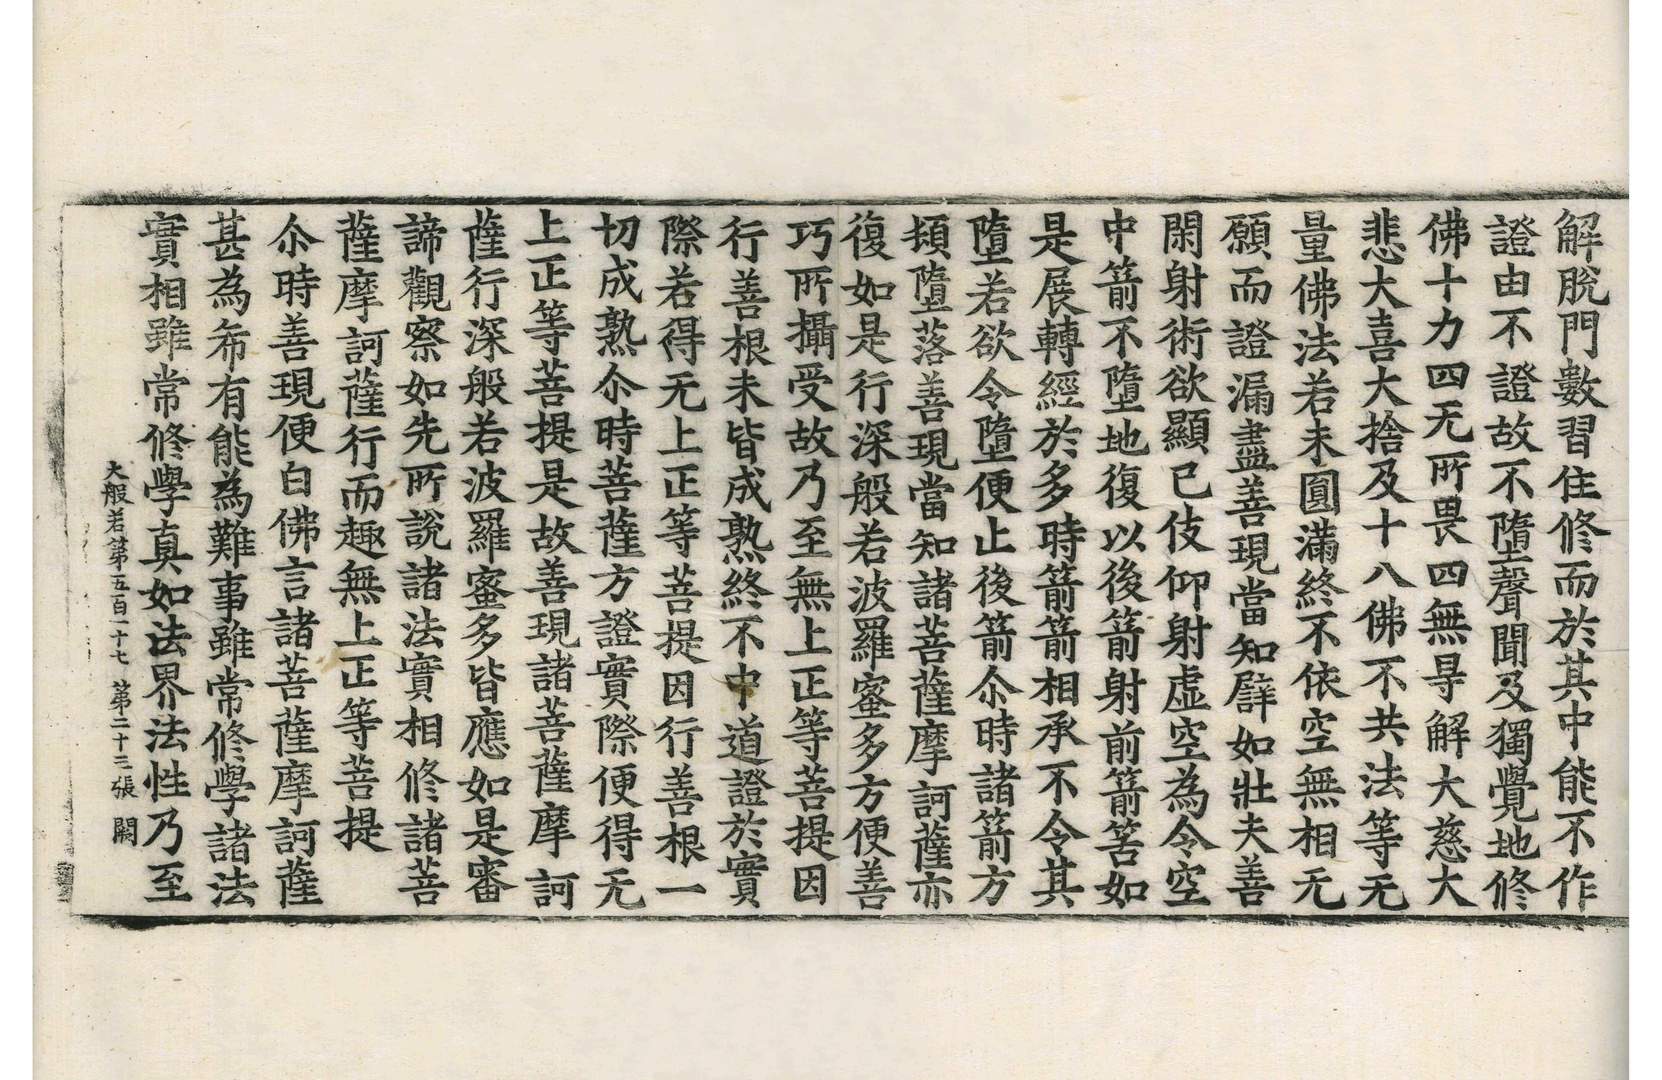 解脫門數習住修而於其中能不作
證由不證故不墮聲聞及獨覺地修
佛十力四无所畏四無㝵解大慈大
悲大喜大捨及十八佛不共法等无
量佛法若未圓滿終不依空無相无
願而證漏盡善現當知譬如壯夫善
閑射術欲顯已伎仰射虛空為令空
中箭不墮地復以後箭射前箭筈如
是展轉經於多時箭箭相承不令其
墮若欲令墮便止後箭尒時諸箭方
頓墮落善現當知諸菩薩摩訶薩亦
復如是行深般若波羅蜜多方便善
巧所攝受故乃至無上正等菩提因
行善根未皆成熟終不中道證於實
際若得无上正等菩提因行善根一
切成熟尒時菩薩方證實際便得无
上正等菩提是故善現諸菩薩摩訶
薩行深般若波羅蜜多皆應如是審
諦觀察如先所說諸法實相修諸菩
薩摩訶薩行而趣無上正等菩提
尒時善現便白佛言諸菩薩摩訶薩
甚為希有能為難事雖常修學諸法
實相雖常修學真如法界法性乃至
大般若第五百一十七 第二十三張 闕